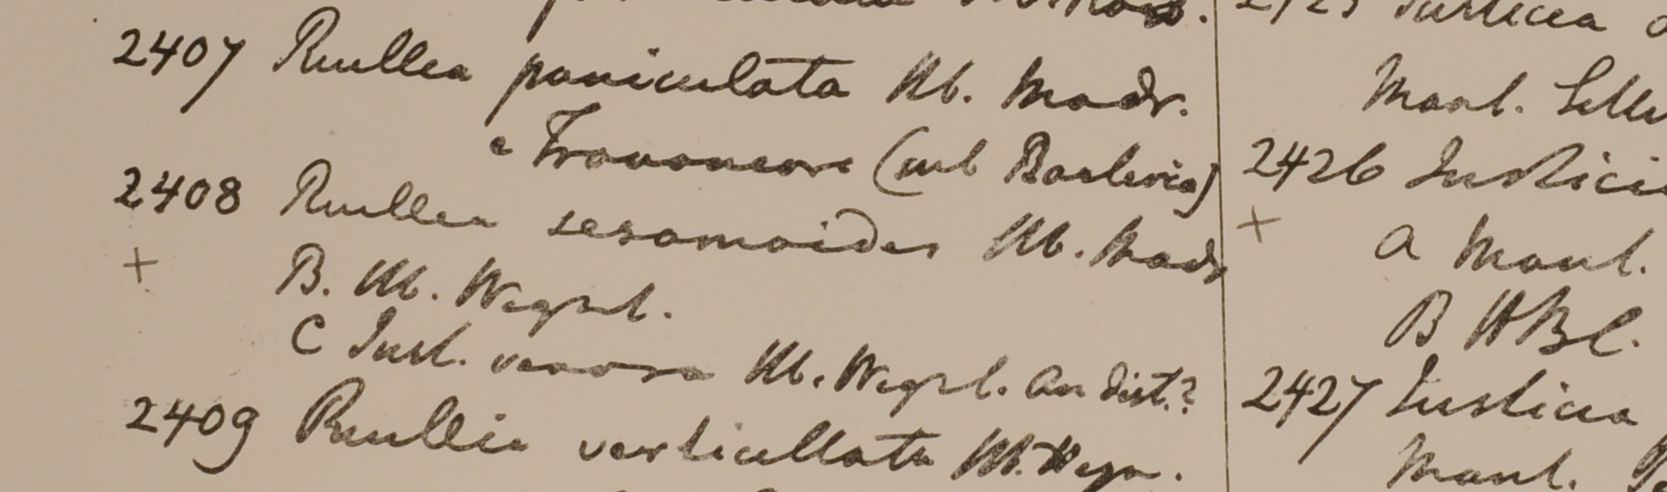 2407 Ruellea paniculata Hb. Madr.
e Travancore (sub Barleria)
2408 Ruellea sesamoides Hb. Madr
+ B. Hb. Wight.
C Just. venosa Hb. Wight. an dist.?
2409 Ruellia verticillata Hb. Heyn.
2425 Justicia
Maul.
2426 Justicia
+ a Maul.
B HBC.
2427 Justicia
Maul.